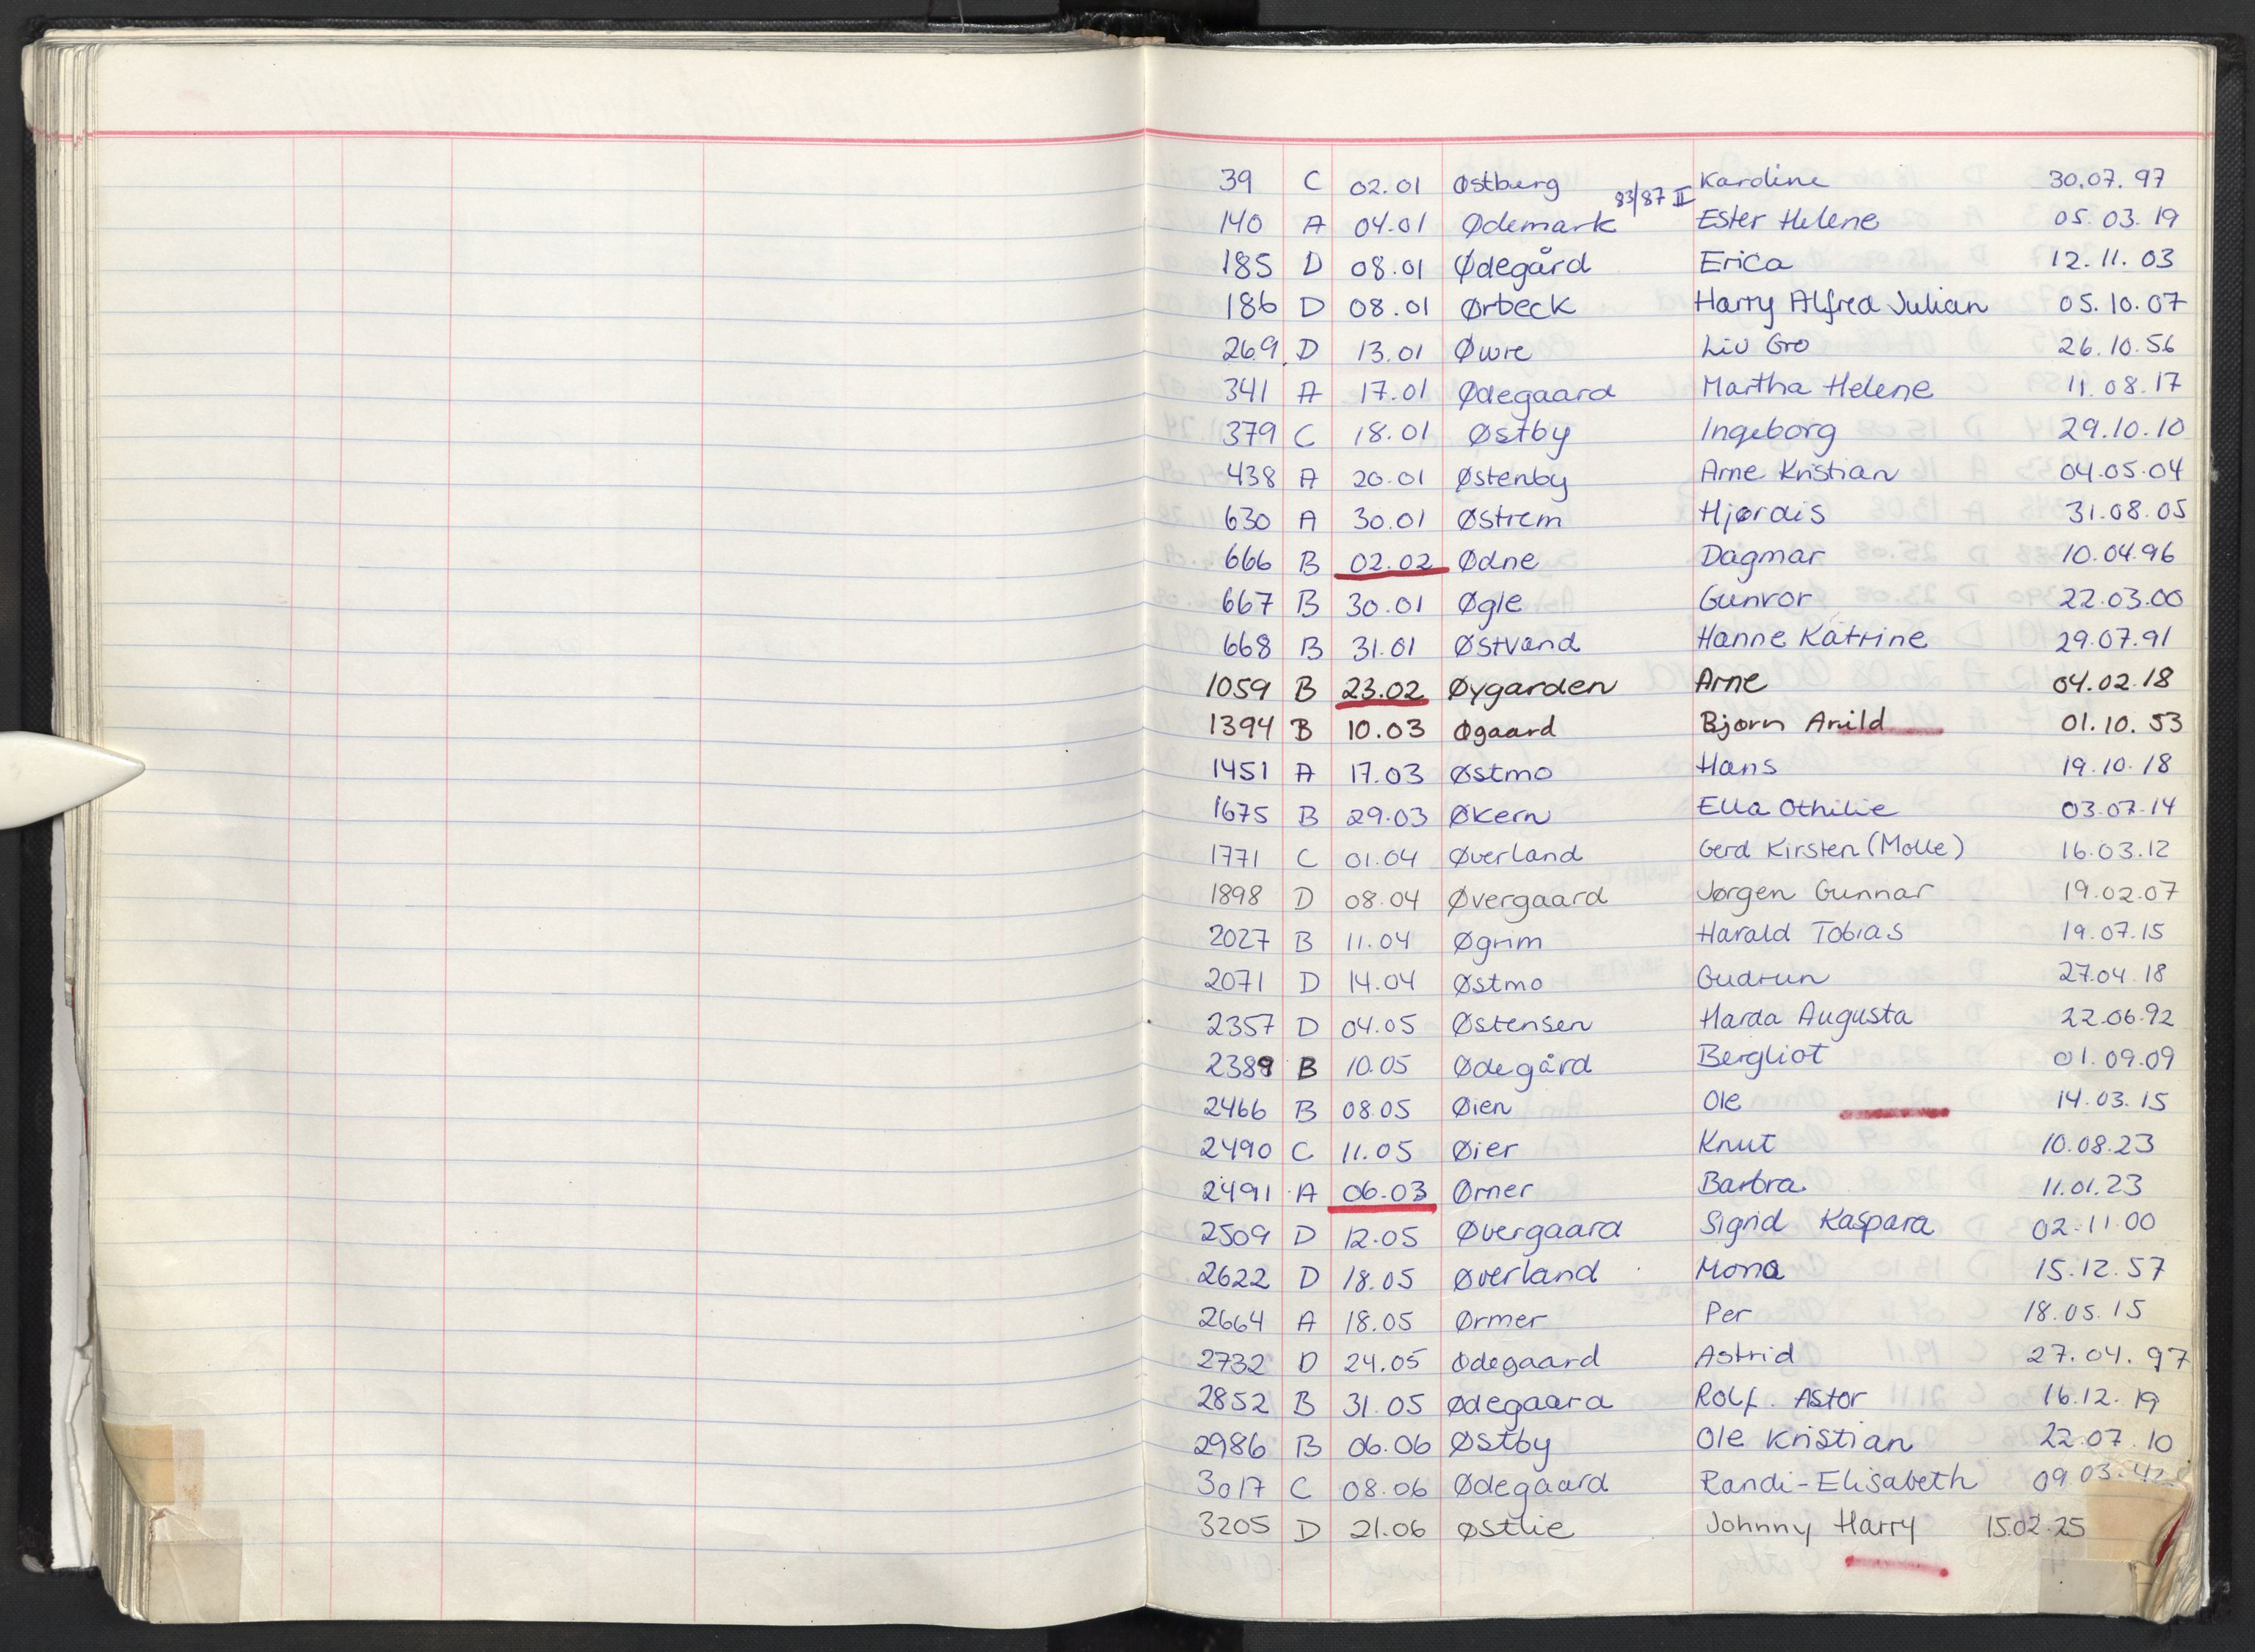 39 C 02.01 Østberg Karoline 30.07.97
83/87 II
140 A 04.01 Ødemark Ester Helene 05.03.19
185 D 08.01 Ødegård Erica 12.11.03
186 D 08.01 Ørbeck Harry Alfred Julian 05.10.07
269 D 13.01 Øwre Liv Gro 26.10.56
341 A 17.01 Ødegaard Martha Helene 11.08.17
379 C 18.01 Østby Ingeborg 29.10.10
438 A 20.01 Østenby Arne Kristian 04.05.04
630 A 30.01 Østrem Hjørdis 31.08.05
666 B 02.02 Ødne Dagmar 10.04.96
667 B 30.01 Øgle Gunvor 22.03.00
668 B 31.01 Østvand Hanne Katrine 29.07.91
1059 B 23.02 Øygarden Arne 04.02.18
1394 B 10.03 Øgaard Bjørn Arild 01.10.53
1451 A 17.03 Østmo Hans 19.10.18
1675 B 29.03 Økern Ella Othilie 03.07.14
1771 C 01.04 Øverland Gerd Kirsten (Molle) 16.03.12
1898 D 08.04 Øvergaard Jørgen Gunnar 19.02.07
2027 B 11.04 Øgrim Harald Tobias 19.07.15
2071 D 14.04 Østmo Gudrun 27.04.18
2357 D 04.05 Østensen Harda Augusta 22.06.92
2389 B 10.05 Ødegård Bergliot 01.09.09
2466 B 08.05 Øien Ole 14.03.15
2490 C 11.05 Øier Knut 10.08.23
2491 A 06.03 Ørner Barbra 11.01.23
2509 D 12.05 Øvergaard Sigrid Kaspara 02.11.00
2622 D 18.05 Øverland Mona 15.12.57
2664 A 18.05 Ørmer Per 18.05.15
2732 D 24.05 Ødegaard Astrid 27.04.97
2852 B 31.05 Ødegaard Rolf. Astor 16.12.19
2986 B 06.06 Østby Ole Kristian 22.07.10
3017 C 08.06 Ødegaard Randi-Elisabeth 09.03.42
3205 D 21.06 Østlie Johnny Harry 15.02.25